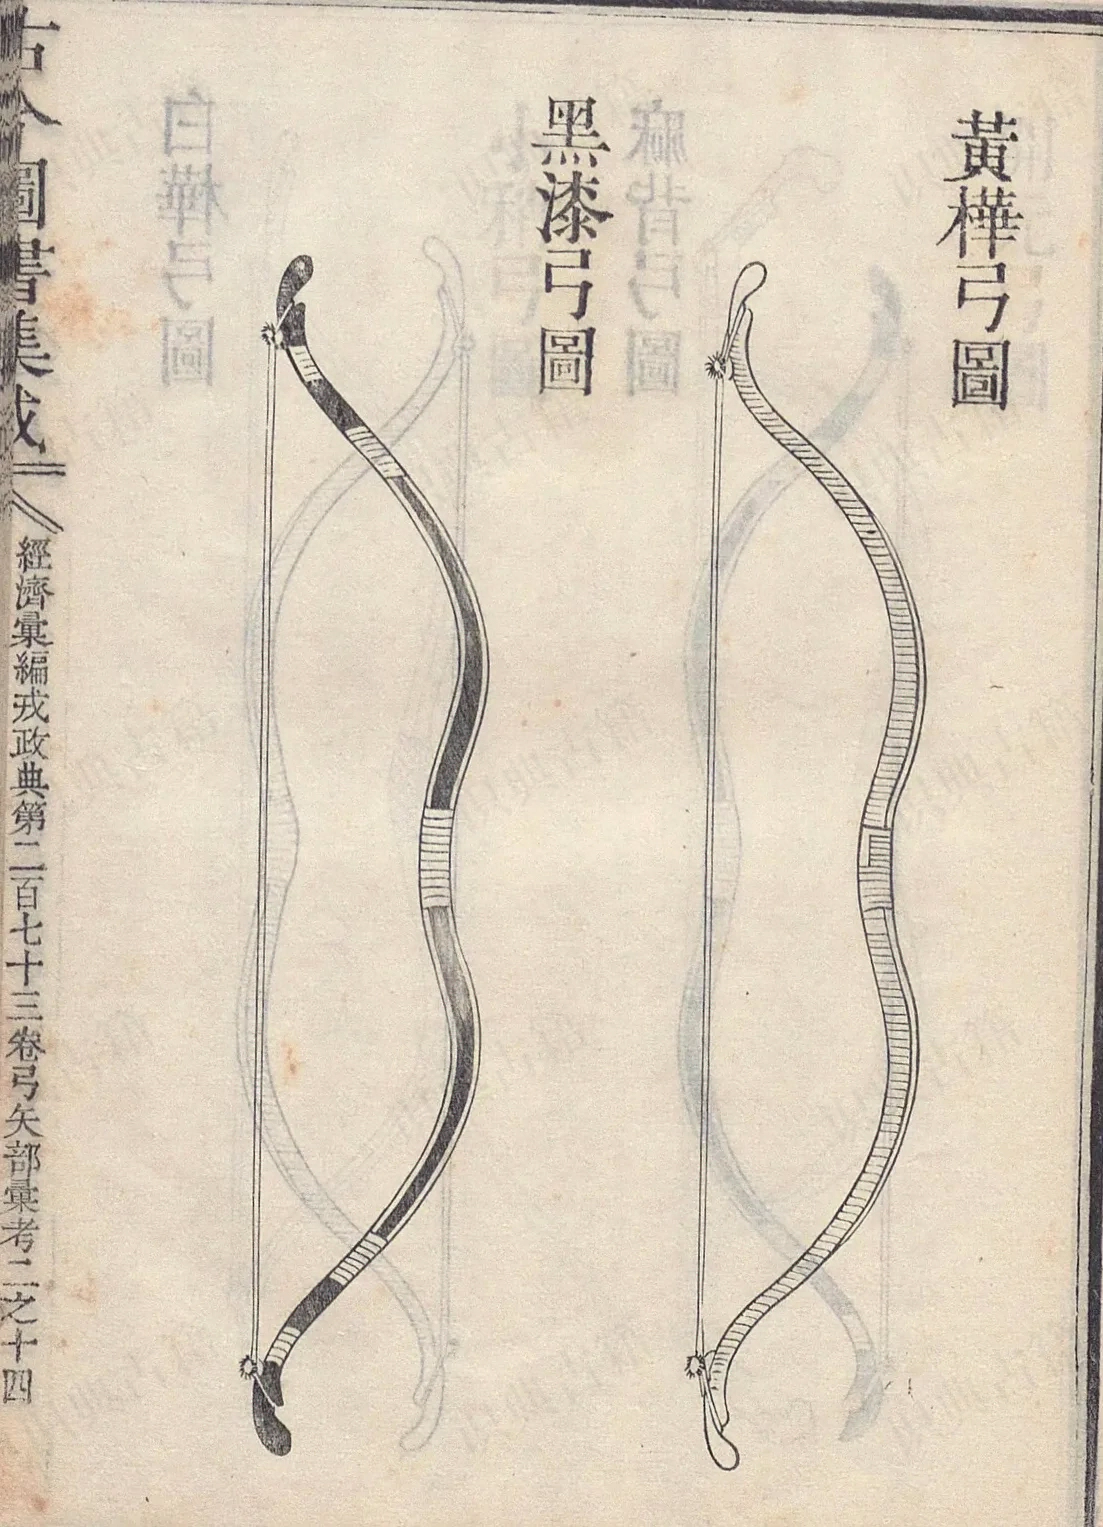 黃樺弓圖
黑漆弓圖
麻背弓圖
白樺弓圖
古今圖書集成
經濟彙編戎政典第二百七十三卷弓矢部彙考二之十四